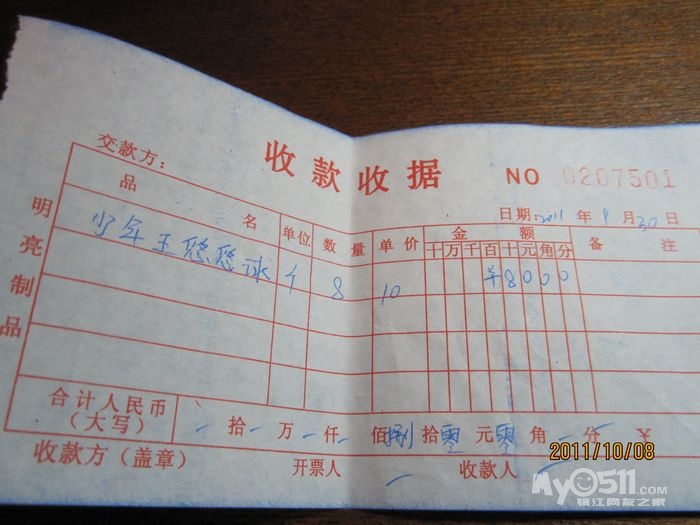 收款收据
NO 0207501
交款方：
日期：2011 年 9 月 30 日
品名 单位 数量 单价 金额 备注
十 万 千 百 十 元 角 分
少年王悠悠球 个 8 10 ¥8000
明亮制品
合计人民币（大写） 拾 万 仟 佰 捌 拾 零 元 零 角 分 ¥
收款方（盖章） 开票人 收款人
2011/10/08
My0511.com
镇江网友之家